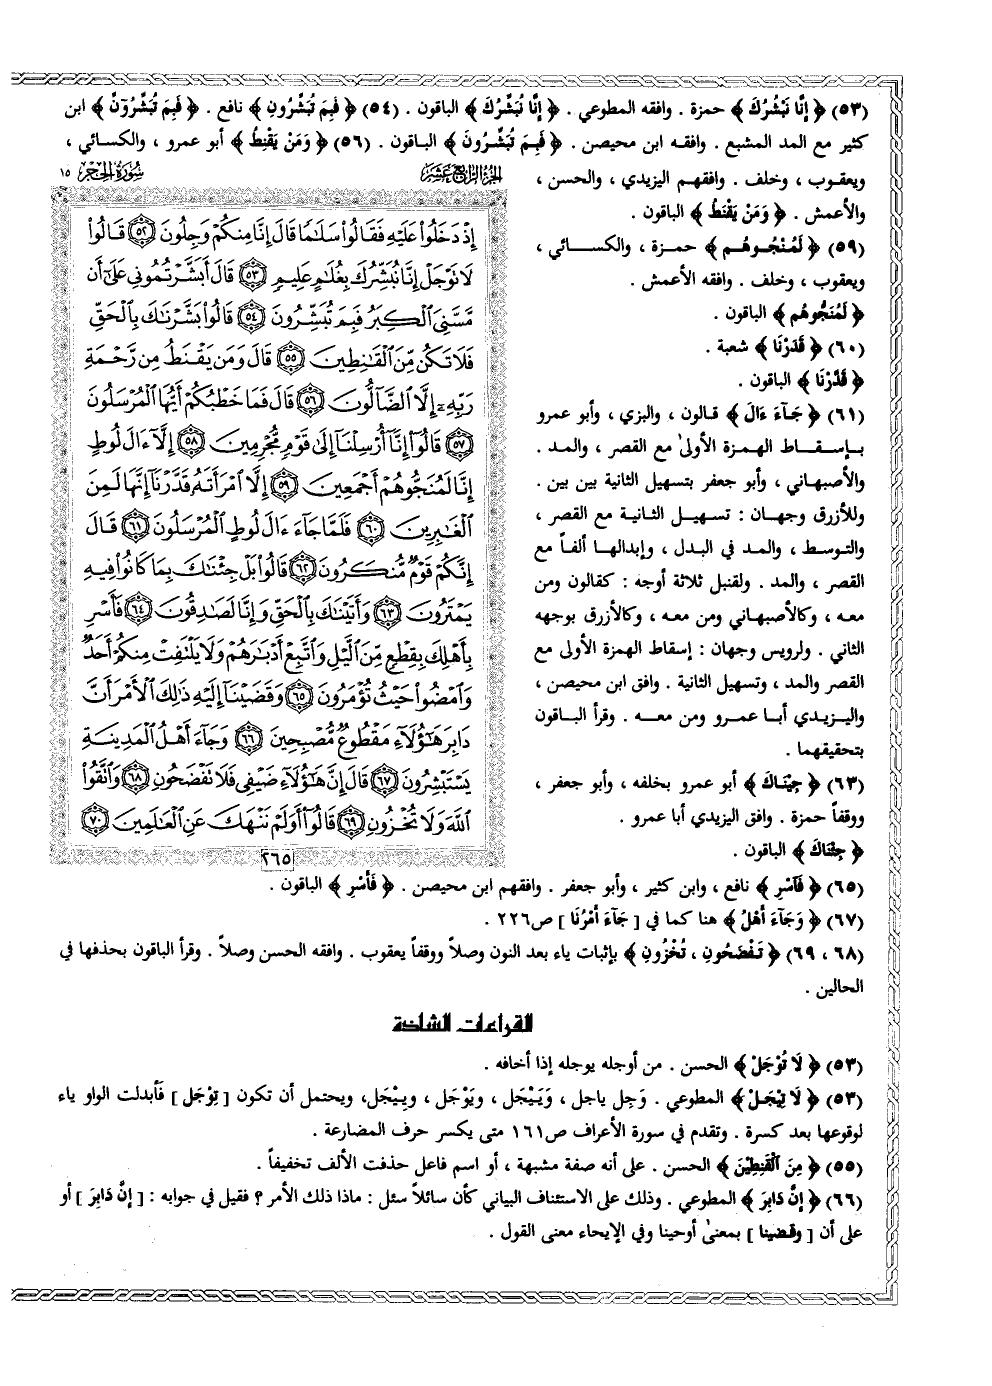 (٥٣) ﴿ إِنَّا نَبْشُرُكَ ﴾ حمزة . وافقه المطوعي . ﴿ إِنَّا نُبَشِّرُكَ ﴾ الباقون . (٥٤) ﴿ فَبِمَ تُبَشِّرُونِ ﴾ نافع . ﴿ فَبِمَ تُبَشِّرُونِّ ﴾ ابن
كثير مع المد المشبع . وافقه ابن محيصن . ﴿ فَبِمَ تُبَشِّرُونَ ﴾ الباقون . (٥٦) ﴿ وَمَنْ يَقْنِطُ ﴾ أبو عمرو ، والكسائي ،
ويعقوب ، وخلف . وافقهم اليزيدي ، والحسن ،
والأعمش . ﴿ وَمَنْ يَقْنَطُ ﴾ الباقون .
(٥٩) ﴿ لَمُنْجُوهُم ﴾ حمزة ، والكسائي ،
ويعقوب ، وخلف . وافقه الأعمش .
﴿ لَمُنَجُّوهُم ﴾ الباقون .
(٦٠) ﴿ قَدَرْنَا ﴾ شعبة .
﴿ قَدَّرْنَا ﴾ الباقون .
(٦١) ﴿ جَآءَ ءَالَ ﴾ قالون ، والبزي ، وأبو عمرو
بإسقاط الهمزة الأولىٰ مع القصر ، والمد .
والأصبهاني ، وأبو جعفر بتسهيل الثانية بين بين .
وللأزرق وجهان : تسهيل الثانية مع القصر ،
والتوسط ، والمد في البدل ، وإبدالها ألفاً مع
القصر ، والمد . ولقنبل ثلاثة أوجه : كقالون ومن
معه ، وكالأصبهاني ومن معه ، وكالأزرق بوجهه
الثاني . ولرويس وجهان : إسقاط الهمزة الأولى مع
القصر والمد ، وتسهيل الثانية . وافق ابن محيصن ،
واليزيدي أبا عمرو ومن معه . وقرأ الباقون
بتحقيقهما .
(٦٣) ﴿ جِيْنَاكَ ﴾ أبو عمرو بخلفه ، وأبو جعفر ،
ووقفاً حمزة . وافق اليزيدي أبا عمرو .
﴿ جِئْنَاكَ ﴾ الباقون .
الجزء الرابع عشر سورة الحجر ١٥
إِذْ دَخَلُوا۟ عَلَيْهِ فَقَالُوا۟ سَلَٰمًا قَالَ إِنَّا مِنكُمْ وَجِلُونَ ٥٢ قَالُوا۟
لَا تَوْجَلْ إِنَّا نُبَشِّرُكَ بِغُلَٰمٍ عَلِيمٍ ٥٣ قَالَ أَبَشَّرْتُمُونِى عَلَىٰٓ أَن
مَّسَّنِىَ ٱلْكِبَرُ فَبِمَ تُبَشِّرُونَ ٥٤ قَالُوا۟ بَشَّرْنَٰكَ بِٱلْحَقِّ
فَلَا تَكُن مِّنَ ٱلْقَٰنِطِينَ ٥٥ قَالَ وَمَن يَقْنَطُ مِن رَّحْمَةِ
رَبِّهِۦٓ إِلَّا ٱلضَّآلُّونَ ٥٦ قَالَ فَمَا خَطْبُكُمْ أَيُّهَا ٱلْمُرْسَلُونَ
٥٧ قَالُوٓا۟ إِنَّآ أُرْسِلْنَآ إِلَىٰ قَوْمٍ مُّجْرِمِينَ ٥٨ إِلَّآ ءَالَ لُوطٍ
إِنَّا لَمُنَجُّوهُمْ أَجْمَعِينَ ٥٩ إِلَّا ٱمْرَأَتَهُۥ قَدَّرْنَآ إِنَّهَا لَمِنَ
ٱلْغَٰبِرِينَ ٦٠ فَلَمَّا جَآءَ ءَالَ لُوطٍ ٱلْمُرْسَلُونَ ٦١ قَالَ
إِنَّكُمْ قَوْمٌ مُّنكَرُونَ ٦٢ قَالُوا۟ بَلْ جِئْنَٰكَ بِمَا كَانُوا۟ فِيهِ
يَمْتَرُونَ ٦٣ وَأَتَيْنَٰكَ بِٱلْحَقِّ وَإِنَّا لَصَٰدِقُونَ ٦٤ فَأَسْرِ
بِأَهْلِكَ بِقِطْعٍ مِّنَ ٱلَّيْلِ وَٱتَّبِعْ أَدْبَٰرَهُمْ وَلَا يَلْتَفِتْ مِنكُمْ أَحَدٌ
وَٱمْضُوا۟ حَيْثُ تُؤْمَرُونَ ٦٥ وَقَضَيْنَآ إِلَيْهِ ذَٰلِكَ ٱلْأَمْرَ أَنَّ
دَابِرَ هَٰٓؤُلَآءِ مَقْطُوعٌ مُّصْبِحِينَ ٦٦ وَجَآءَ أَهْلُ ٱلْمَدِينَةِ
يَسْتَبْشِرُونَ ٦٧ قَالَ إِنَّ هَٰٓؤُلَآءِ ضَيْفِى فَلَا تَفْضَحُونِ ٦٨ وَٱتَّقُوا۟
ٱللَّهَ وَلَا تُخْزُونِ ٦٩ قَالُوٓا۟ أَوَلَمْ نَنْهَكَ عَنِ ٱلْعَٰلَمِينَ ٧٠
٢٦٥
(٦٥) ﴿ فَاسْرِ ﴾ نافع ، وابن كثير ، وأبو جعفر . وافقهم ابن محيصن . ﴿ فَأَسْرِ ﴾ الباقون .
(٦٧) ﴿ وَجَآءَ أَهْلُ ﴾ هنا كما في [ جَآءَ أَمْرُنَا ] ص٢٢٦ .
(٦٨ ، ٦٩) ﴿ تَفْضَحُونِ ، تُخْزُونِ ﴾ بإثبات ياء بعد النون وصلاً ووقفاً يعقوب . وافقه الحسن وصلاً . وقرأ الباقون بحذفها في
الحالين .
القراءات الشاذة
(٥٣) ﴿ لَا تُوْجَلْ ﴾ الحسن . من أوجله يوجله إذا أخافه .
(٥٣) ﴿ لَا تِيْجَلْ ﴾ المطوعي . وَجِل ياجل ، وَيَيْجَل ، ويَوْجَل ، ويِيْجَل، ويحتمل أن تكون [ تِوْجَل ] فَأبدلت الواو ياء
لوقوعها بعد كسرة . وتقدم في سورة الأعراف ص١٦١ متى يكسر حرف المضارعة .
(٥٥) ﴿ مِنَ الْقَنِطِيْنَ ﴾ الحسن . على أنه صفة مشبهة ، أو اسم فاعل حذفت الألف تخفيفاً .
(٦٦) ﴿ إِنَّ دَابِرَ ﴾ المطوعي . وذلك على الاستئناف البياني كأن سائلاً سئل : ماذا ذلك الأمر ؟ فقيل في جوابه : [ إِنَّ دَابِرَ ] أو
على أن [ وقضينا ] بمعنىٰ أوحينا وفي الإيحاء معنى القول .